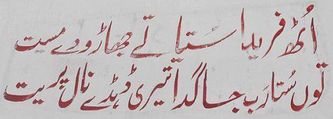 اُٹھ فریدا سُتیا تے جھاڑو دے مسیت
توں سُتا رب جاگدا تیری ڈہڈے نال پریت